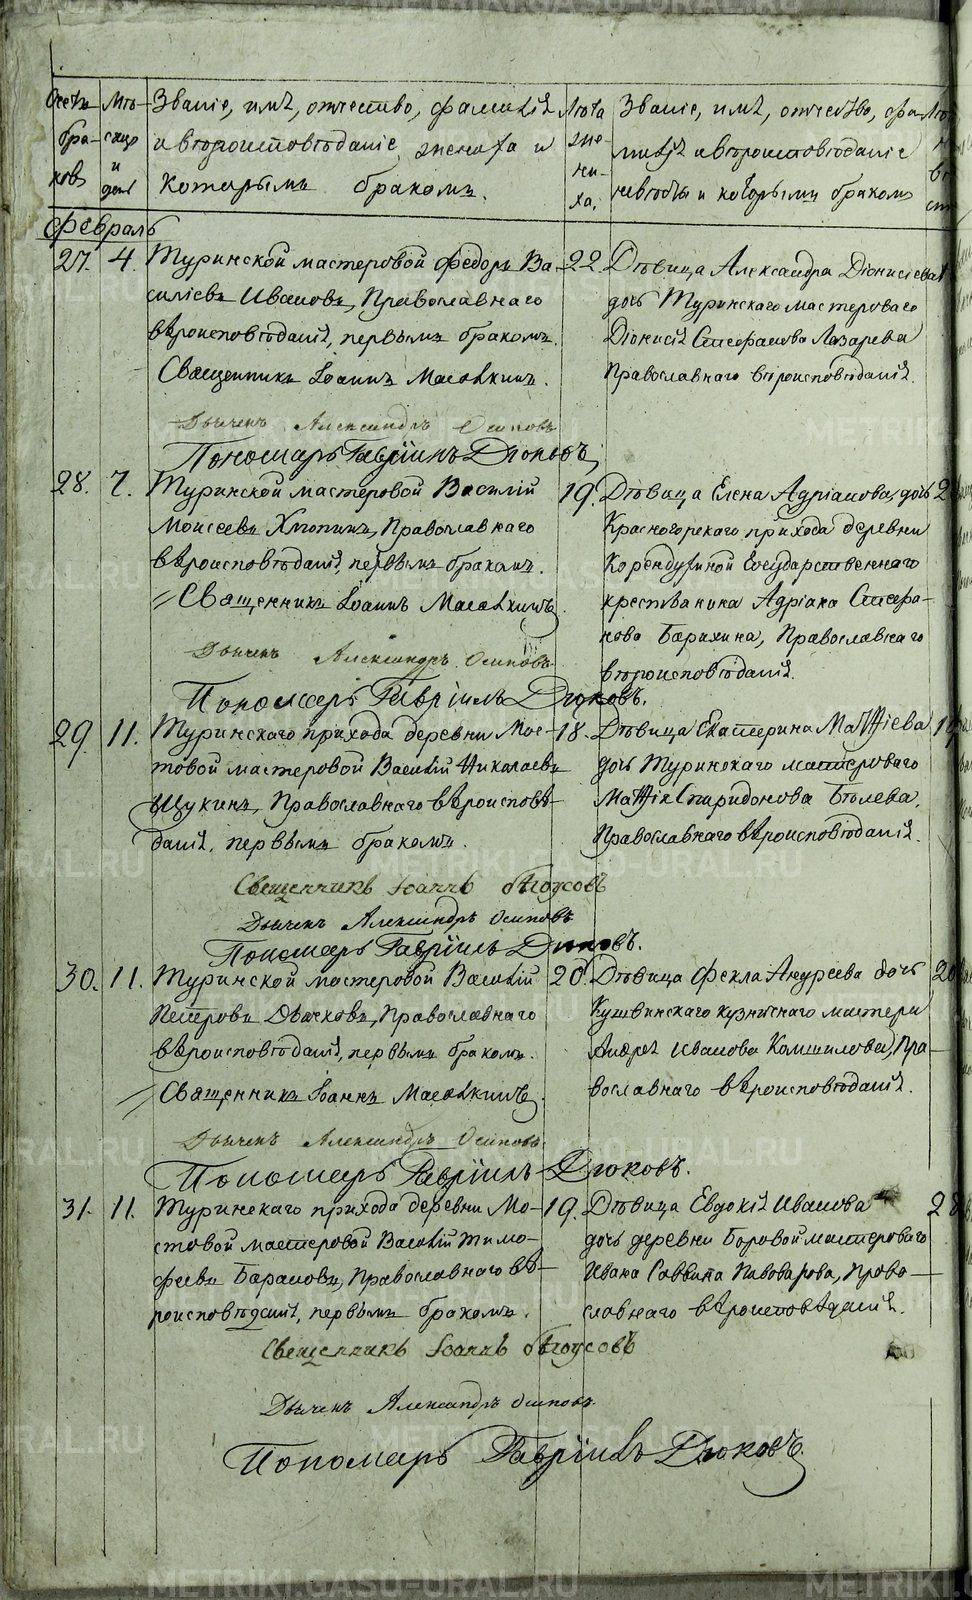 METRIKI.GASU-URAL.RU
Счетъ бра-ковъ
Мѣ-сяцъ и день
Званіе, имѣ, отчество, фамилія
и вѣроисповѣданіе жениха и
которымъ бракомъ.
Лѣта же-ни-ха.
Званіе, имѣ, отчество, фа-
милія и вѣроисповѣданіе
невѣсты и которымъ бракомъ
Февраль
27. 4. Туринской мастеровой Федоръ Ва-
силіевъ Ивановъ, Православнаго
вѣроисповѣданія, первымъ бракомъ.
Священникъ Іоаннъ
Дьяченъ Александръ Осиповъ
Пономарь Гавріилъ Дюковъ
22. Дѣвица Александра Діонисіева
дочь Туринскаго мастероваго
Діонисія Стефанова Лазарева
Православнаго вѣроисповѣданія.
28. 7. Туринской мастеровой Василій
Моисеевъ Хмопинъ, Православнаго
вѣроисповѣданія, первымъ бракомъ.
Священникъ Іоаннъ
Дьяченъ Александръ Осиповъ
Пономарь Гавріилъ Дюковъ.
19. Дѣвица Елена Адріанова, дочь
Красногорскаго прихода деревни
Государственнаго
крестьянина Адріана Стефа-
нова Барихина, Православнаго
вѣроисповѣданія.
29. 11. Туринскаго прихода деревни Мос-
товой мастеровой Василій Николаевъ
Щукинъ, Православнаго вѣроисповѣ-
данія, первымъ бракомъ.
Священникъ Іоаннъ Бѣлоусовъ
Дьяченъ Александръ Осиповъ
Пономарь Гавріилъ Дюковъ.
18. Дѣвица Екатерина Матѳіева
дочь Туринскаго мастероваго
Матѳія Спиридонова Бѣлева,
Православнаго вѣроисповѣданія.
30. 11. Туринской мастеровой Василій
Петровъ Дьячковъ, Православнаго
вѣроисповѣданія, первымъ бракомъ.
Священникъ Іоаннъ
Дьяченъ Александръ Осиповъ
Пономарь Гавріилъ Дюковъ.
20. Дѣвица Фекла Андреева дочь
Кушвинскаго кузнѣчнаго мастера
Андрея Иванова Комшилова, Пра-
вославнаго вѣроисповѣданія.
31. 11. Туринскаго прихода деревни Мо-
стовой мастеровой Василій Тимо-
феевъ Барановъ, Православнаго вѣ-
роисповѣданія, первымъ бракомъ.
Священникъ Іоаннъ Бѣлоусовъ
Дьяченъ Александръ Осиповъ
Пономарь Гавріилъ Дюковъ.
19. Дѣвица Евдокія Иванова
дочь деревни Боровой мастероваго
Ивана Саввина Пивоварова, Право-
славнаго вѣроисповѣданія.
METRIKI.GASU-URAL.RU